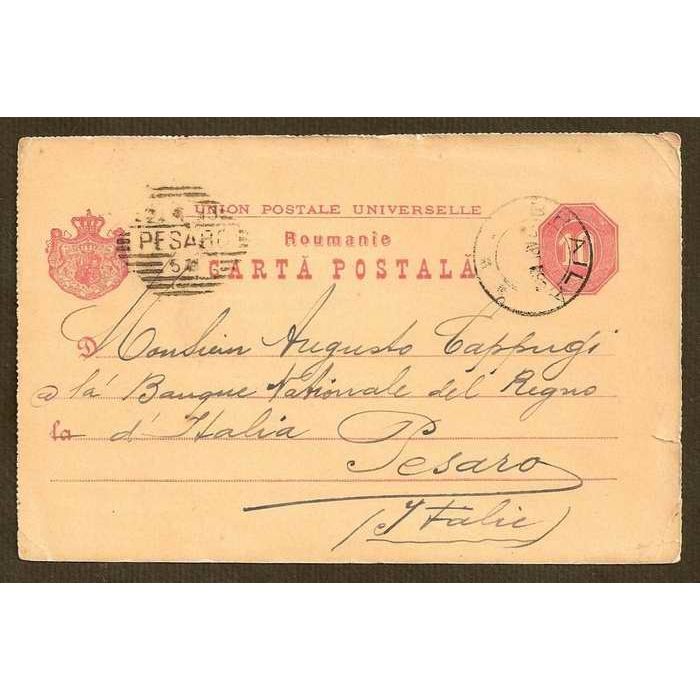 UNION POSTALE UNIVERSELLE
Roumanie
CARTĂ POSTALĂ
PESARO
BRAILA
10
D Monsieur Augusto Tappugi
a la Banque Nationale del Regno
la d' Italia
Pesaro
(Italie)